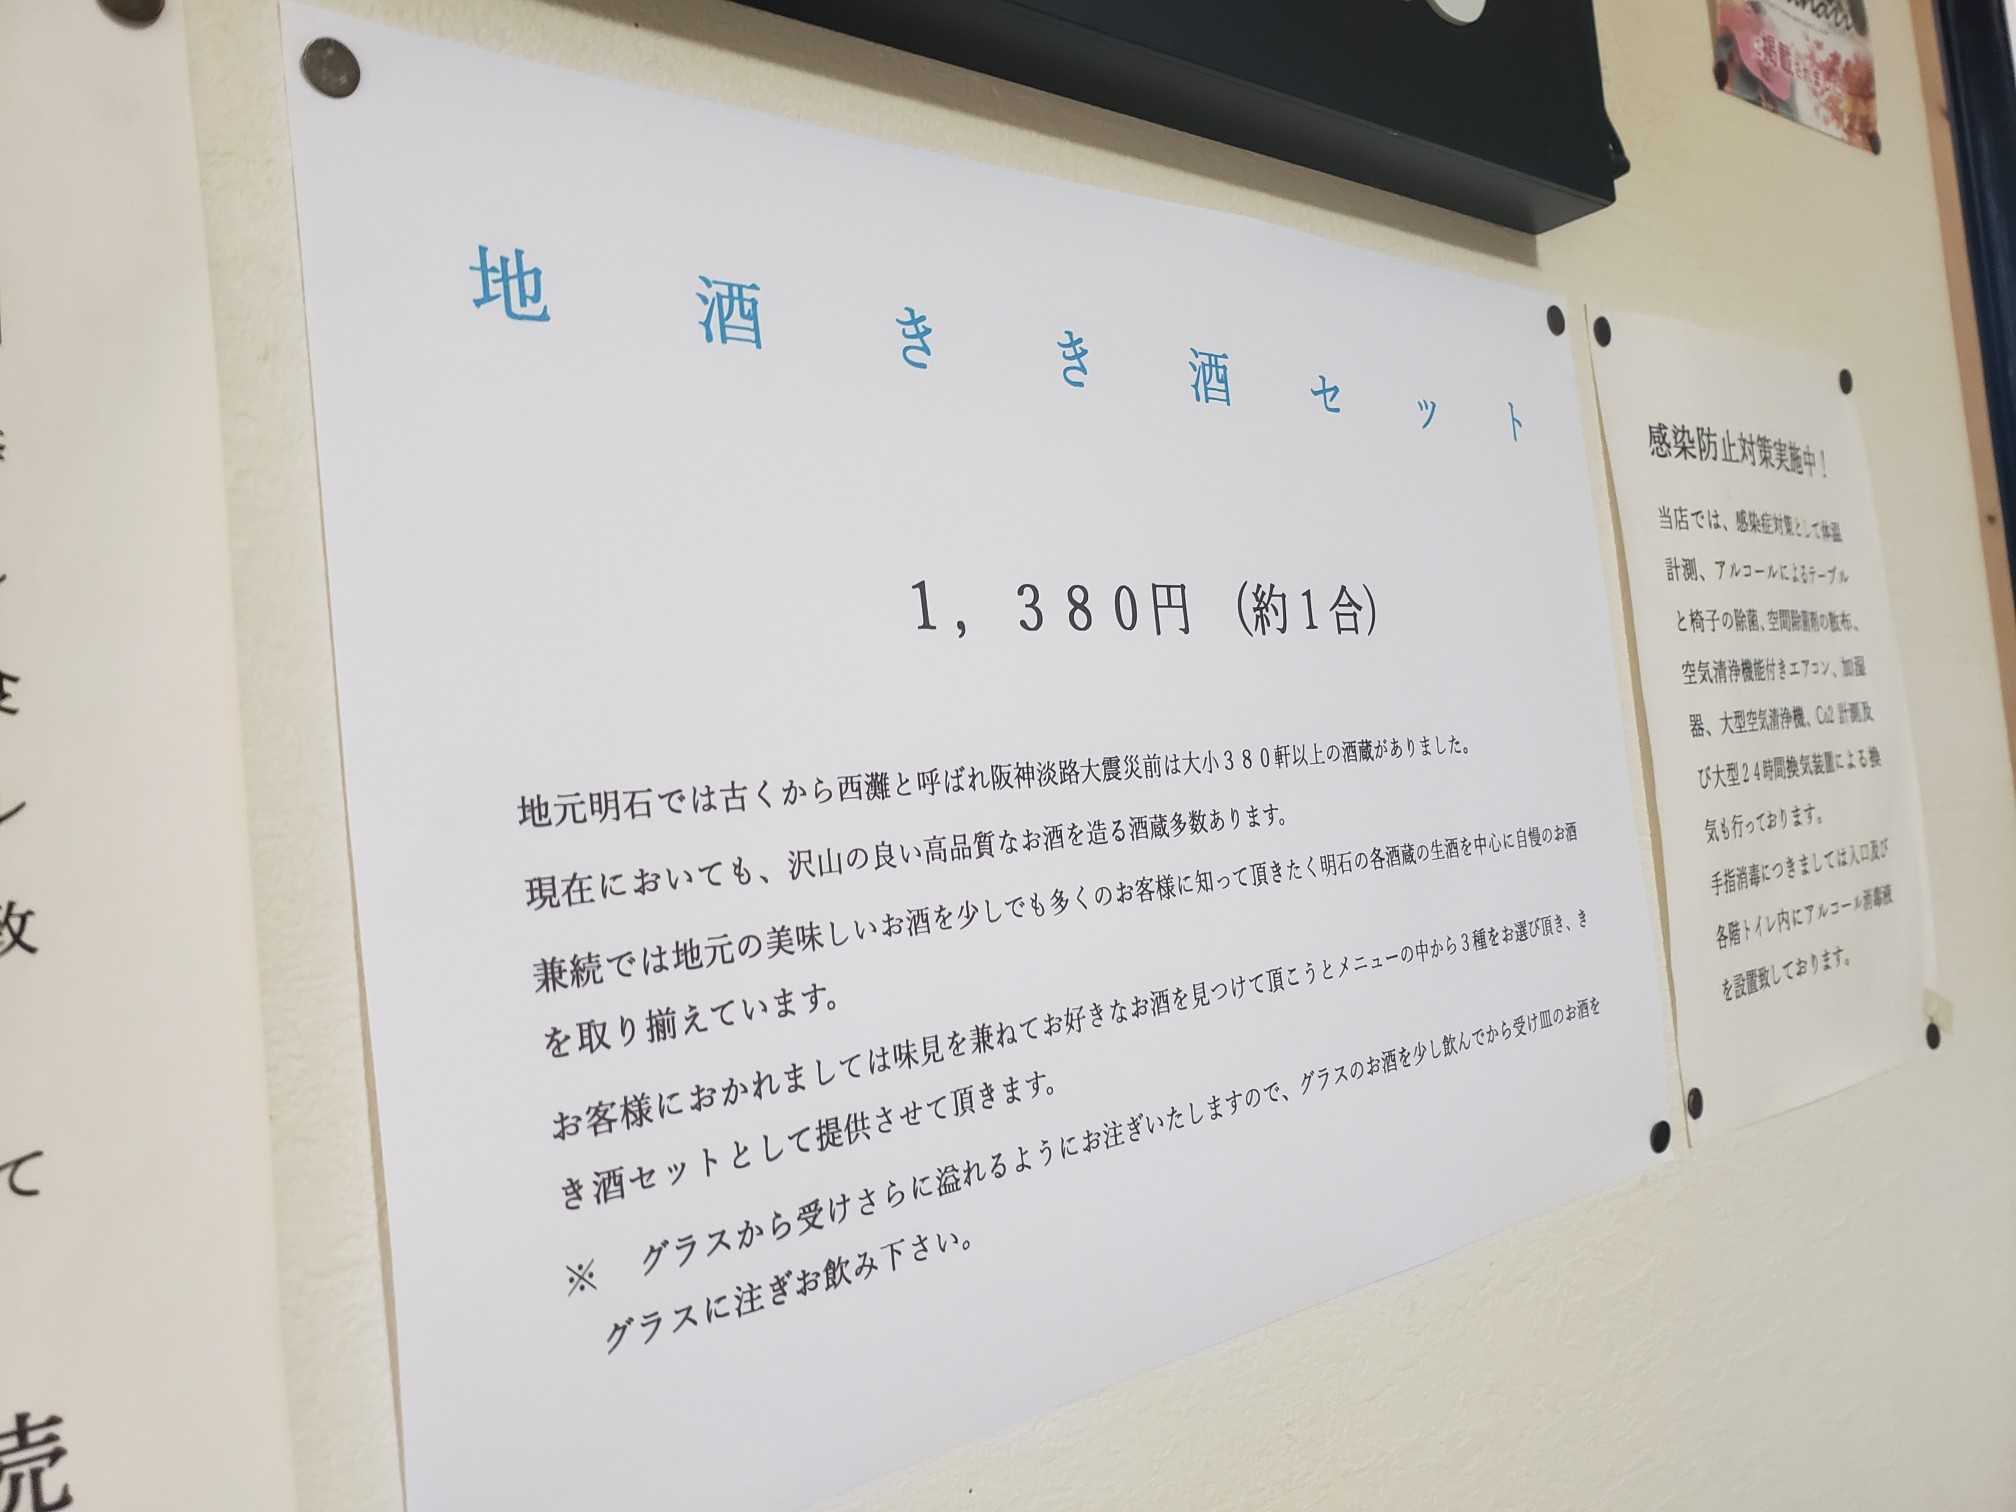 地酒きき酒セット
1,380円 (約1合)
地元明石では古くから西灘と呼ばれ阪神淡路大震災前は大小380軒以上の酒蔵がありました。
現在においても、沢山の良い高品質なお酒を造る酒蔵多数あります。
兼続では地元の美味しいお酒を少しでも多くのお客様に知って頂きたく明石の各酒蔵の生酒を中心に自慢のお酒
を取り揃えています。
お客様におかれましては味見を兼ねてお好きなお酒を見つけて頂こうとメニューの中から3種をお選び頂き、き
き酒セットとして提供させて頂きます。
※ グラスから受けさらに溢れるようにお注ぎいたしますので、グラスのお酒を少し飲んでから受け皿のお酒を
グラスに注ぎお飲み下さい。
感染防止対策実施中!
当店では、感染症対策として体温
計測、アルコールによるテーブル
と椅子の除菌、空間除菌剤の散布、
空気清浄機能付きエアコン、加湿
器、大型空気清浄機、Co2計測及
び大型24時間換気装置による換
気も行っております。
手指消毒につきましては入口及び
各階トイレ内にアルコール消毒液
を設置致しております。
掲載されました
て
売